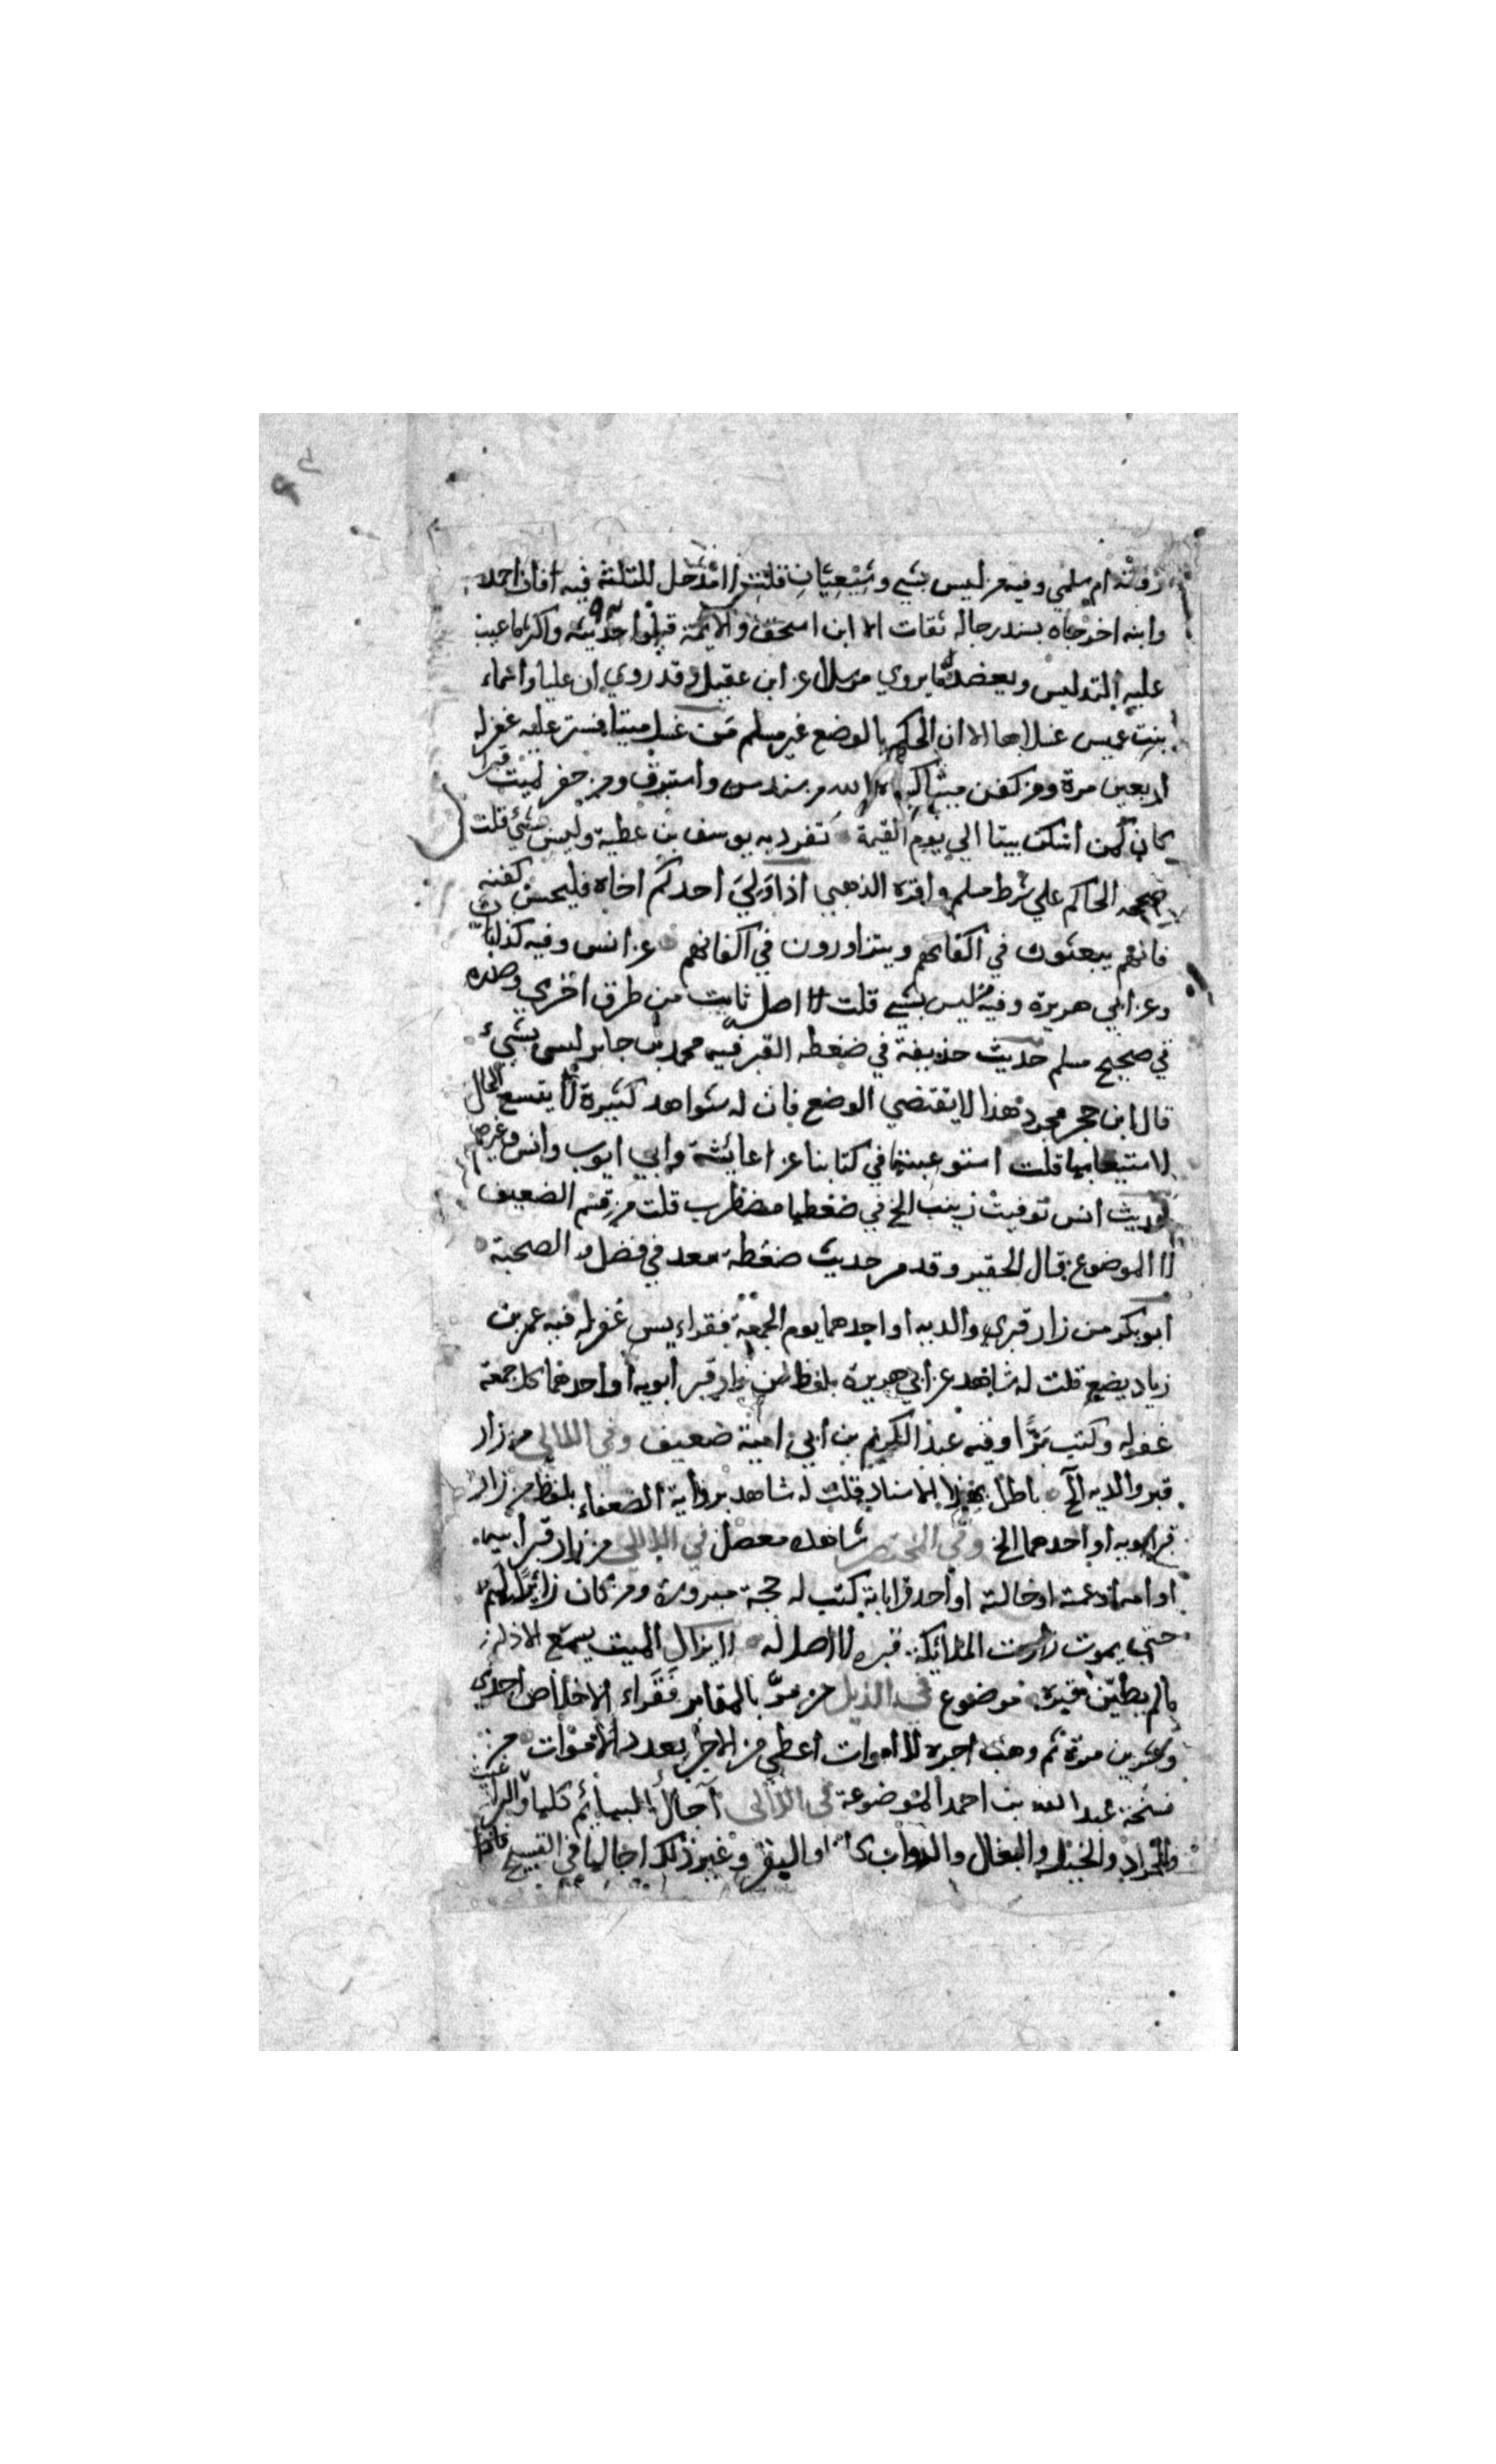 روته ام سلمي وفيه من ليس بشي وشيعيان قلت لا مدخل للثلثة فيه فان احمد
وابنه اخرجاه بسند رجاله ثقات الا ابن اسحق والايمة قبلوا حديثه واكثر ما عيب
عليه التدليس ويعضده ما يروي مرسلا عن ابن عقيل وقد روي ان عليا واسماء
بنت عميس غسلاها الا ان الحكم بالوضع غير مسلم من غسل ميتا فستر عليه غفر له
اربعين مرة ومن كفن ميتا كساه الله من سندس واستبرق ومن حفر لميت قبرا
كان كمن اسكن بيتا الي يوم القيمة تفرد به يوسف بن عطية وليس بشئ قلت
صححه الحاكم علي شرط مسلم واقره الذهبي اذا ولي احدكم اخاه فليحسن كفنه
فانهم يبعثون في اكفانهم ويتزاورون في اكفانهم عن انس وفيه كذاب
وعن ابي هريرة وفيه من ليس بشي قلت له اصل ثابت من طرق اخري وصدره
في صحيح مسلم حديث حذيفة في ضغطه القبر فيه محمد بن جابر ليس بشئ
قال ابن حجر مجرد هذا لا يقتضي الوضع فان له شواهد كثيرة لا يتسع الحال
لاستيعابها قلت استوعبتها في كتابنا عن عايشة وابي ايوب وانس وغيرهم
حديث انس توفيت زينب الخ في ضغطها مضطرب قلت من قسم الضعيف
لا الموضوع قال الحقير وقد مر حديث ضغطة سعد في فضل الصحبة
ابو بكر من زار قبري والديه او احدهما يوم الجمعة فقراء يس غفر له فيه عمر بن
زياد يضع قلت له شاهد عن ابي هريرة بلفظ من زار قبر ابويه او احدهما كل جمعة
غفر له وكتب برا وفيه عبد الكريم بن ابي امية ضعيف وفي اللالي من زار
قبر والديه الخ باطل بهذا الاسناد قلت له شاهد برواية الضعفاء بلفظ من زار
قبر ابويه او احدهما الخ وفي المختصر شاهده معضل في اللالي من زار قبر ابيه
او امه او عمته او خالته او احد قراباته كتب له حجة مبرورة ومن كان زائرا لهم
حتي يموت زارت الملائكة قبره لا اصل له لا يزال الميت يسمع الاذان
مالم يطين قبره موضوع في الذيل من مر بالمقابر فقراء الاخلاص احدي
وعشرين مرة ثم وهب اجره للاموات اعطي من الاجر بعدد الاموات من
نسخة عبد الله بن احمد الموضوعة في اللالي آجال البهائم كلها والبراغيث
والجراد والخيل والبغال والدواب كلها والبقر وغير ذلك اجالها في التسبيح فاذا